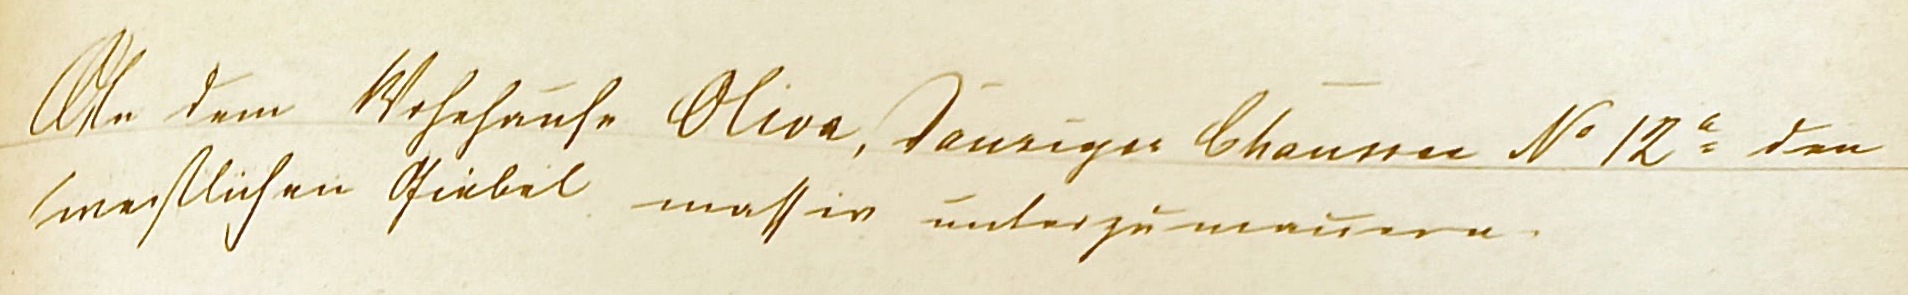 An dem Wohnhause Oliva, Danziger Chaussee No 12a den
westlichen Giebel massiv unterzumauern.